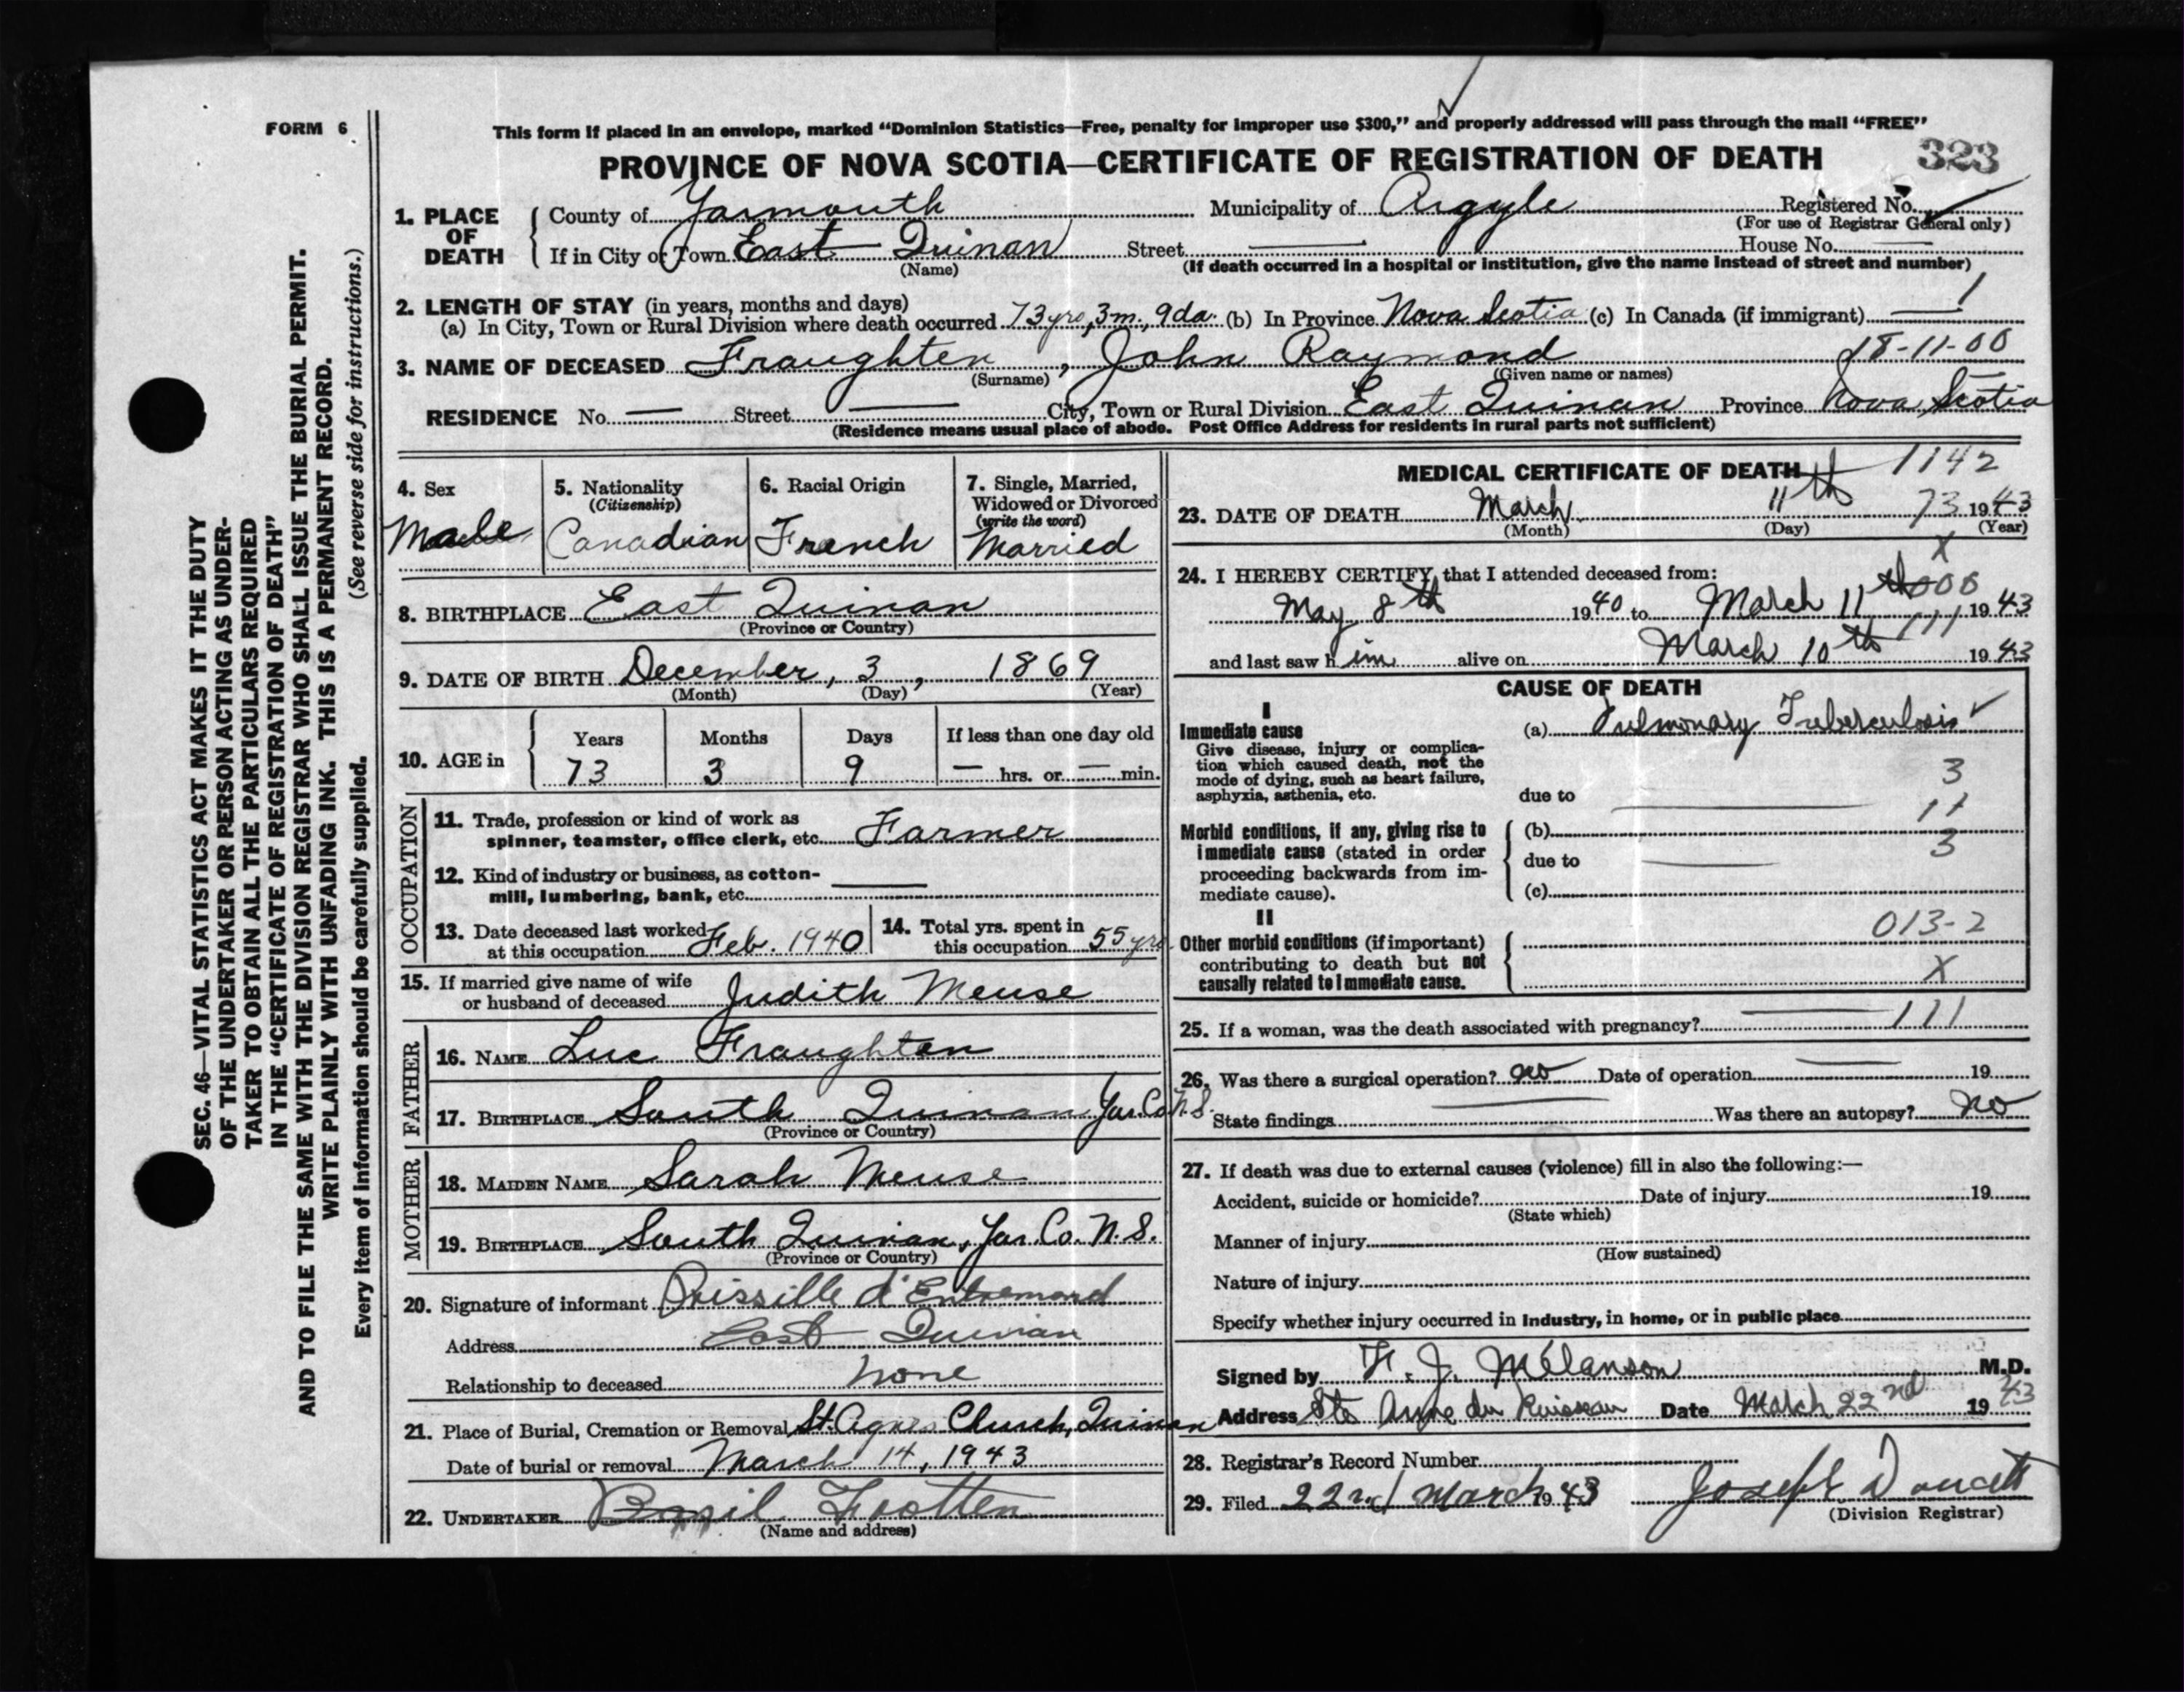 FORM 6
This form if placed in an envelope, marked “Dominion Statistics—Free, penalty for improper use $300,” and properly addressed will pass through the mail “FREE”
PROVINCE OF NOVA SCOTIA—CERTIFICATE OF REGISTRATION OF DEATH 323
SEC. 46—VITAL STATISTICS ACT MAKES IT THE DUTY
OF THE UNDERTAKER OR PERSON ACTING AS UNDER-
TAKER TO OBTAIN ALL THE PARTICULARS REQUIRED
IN THE “CERTIFICATE OF REGISTRATION OF DEATH”
AND TO FILE THE SAME WITH THE DIVISION REGISTRAR WHO SHALL ISSUE THE BURIAL PERMIT.
WRITE PLAINLY WITH UNFADING INK. THIS IS A PERMANENT RECORD.
Every item of information should be carefully supplied. (See reverse side for instructions.)
1. PLACE OF DEATH
County of Yarmouth Municipality of Argyle Registered No.
(For use of Registrar General only)
If in City or Town East Quinan Street — House No. —
(Name) (If death occurred in a hospital or institution, give the name instead of street and number)
2. LENGTH OF STAY (in years, months and days) 1
(a) In City, Town or Rural Division where death occurred 73 yrs, 3 m., 9 da. (b) In Province Nova Scotia (c) In Canada (if immigrant) —
3. NAME OF DECEASED Fraughten, John Raymond 18-11-00
(Surname) (Given name or names)
RESIDENCE No. — Street — City, Town or Rural Division East Quinan Province Nova Scotia
(Residence means usual place of abode. Post Office Address for residents in rural parts not sufficient)
4. Sex
Male
5. Nationality
(Citizenship)
Canadian
6. Racial Origin
French
7. Single, Married,
Widowed or Divorced
(write the word)
Married
8. BIRTHPLACE East Quinan
(Province or Country)
9. DATE OF BIRTH December, 3, 1869
(Month) (Day) (Year)
10. AGE in
Years Months Days If less than one day old
73 3 9 — hrs. or — min.
OCCUPATION
11. Trade, profession or kind of work as
spinner, teamster, office clerk, etc. Farmer
12. Kind of industry or business, as cotton-
mill, lumbering, bank, etc. —
13. Date deceased last worked
at this occupation Feb. 1940
14. Total yrs. spent in
this occupation 55 yrs.
15. If married give name of wife
or husband of deceased Judith Meuse
FATHER
16. NAME Luc Fraughton
17. BIRTHPLACE South Quinan Yar. Co. N.S.
(Province or Country)
MOTHER
18. MAIDEN NAME Sarah Meuse
19. BIRTHPLACE South Quinan, Yar. Co. N.S.
(Province or Country)
20. Signature of informant Prissille d'Entremond
Address East Quinan
Relationship to deceased None
21. Place of Burial, Cremation or Removal St. Agnes Church, Quinan
Date of burial or removal March 14, 1943
22. UNDERTAKER Basil Frotten
(Name and address)
MEDICAL CERTIFICATE OF DEATH 1142
23. DATE OF DEATH March 11th 73 1943
(Month) (Day) (Year)
X
24. I HEREBY CERTIFY that I attended deceased from:
000
May 8th 1940 to March 11th 1943
111
and last saw him alive on March 10th 1943
CAUSE OF DEATH
I
Immediate cause
Give disease, injury or complica-
tion which caused death, not the
mode of dying, such as heart failure,
asphyxia, asthenia, etc.
(a) Pulmonary Tuberculosis
3
due to —
11
Morbid conditions, if any, giving rise to
immediate cause (stated in order
proceeding backwards from im-
mediate cause).
(b)
3
due to —
(c)
II
Other morbid conditions (if important)
contributing to death but not
causally related to immediate cause.
013-2
X
25. If a woman, was the death associated with pregnancy? — 111
26. Was there a surgical operation? no Date of operation — 19
State findings — Was there an autopsy? no
27. If death was due to external causes (violence) fill in also the following:—
Accident, suicide or homicide? Date of injury 19
(State which)
Manner of injury
(How sustained)
Nature of injury
Specify whether injury occurred in industry, in home, or in public place
Signed by F. J. Mélanson M.D.
Address Ste Anne du Ruisseau Date March 22nd 1943
28. Registrar's Record Number
29. Filed 22nd March 1943 Joseph Doucette
(Division Registrar)